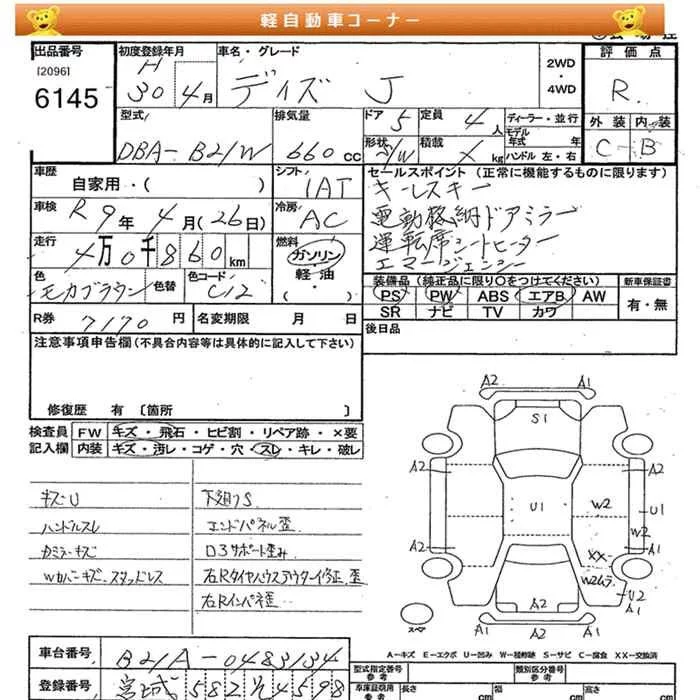 軽自動車コーナー
出品番号
[2096]
6145
初度登録年月
H 30年 4月
車名・グレード
デイズ J
2WD
・
4WD
評価点
R
型式
DBA-B21W
排気量
660cc
ドア 5
定員 4人
形状 5/W
積載 ×kg
ディーラー・並行
モデル年式 年
ハンドル 左・右
外装 内装
C B
車歴
自家用・( )
シフト
IAT
車検
R9年 4月(26日)
冷房
AC
走行
4万0千860km
燃料
ガソリン
・
軽油
( )
色
モカブラウン
色替
色コード
C12
セールスポイント (正常に機能するものに限ります)
キーレスキー
電動格納ドアミラー
運転席シートヒーター
エマージェンシー
装備品 (純正品に限り○をつけてください)
PS PW ABS エアB AW
SR ナビ TV カワ
新車保証書
有・無
R券 7170円
名変期限 月 日
後日品
注意事項申告欄 (不具合内容等は具体的に記入して下さい)
修復歴 有 [箇所 ]
検査員記入欄
FW キズ・飛石・ヒビ割・リペア跡・×要
内装 キズ・汚レ・コゲ・穴・スレ・キレ・破レ
キズU
ハンドルスレ
カミラーキズ
Wカバーキズ、スタッドレス
下廻りS
エンドパネル歪
ロ3サポート歪み
右Rタイヤハウスアウター修正、歪
右Rインパネ歪
A2 A1
S1
A2 A2
U1 W2 U1
W2
XX
A2 A1
W2ムラ
U2
A1
A2
A1 A1
スペア
A-キズ E-エクボ U-凹み W-補修跡 S-サビ C-腐食 XX-交換済
車台番号
B21A-0483134
登録番号
宮城 582 そ 4598
型式指定番号
参考
類別区分番号
参考
車庫証明用
参考
長さ cm
幅 cm
高さ cm